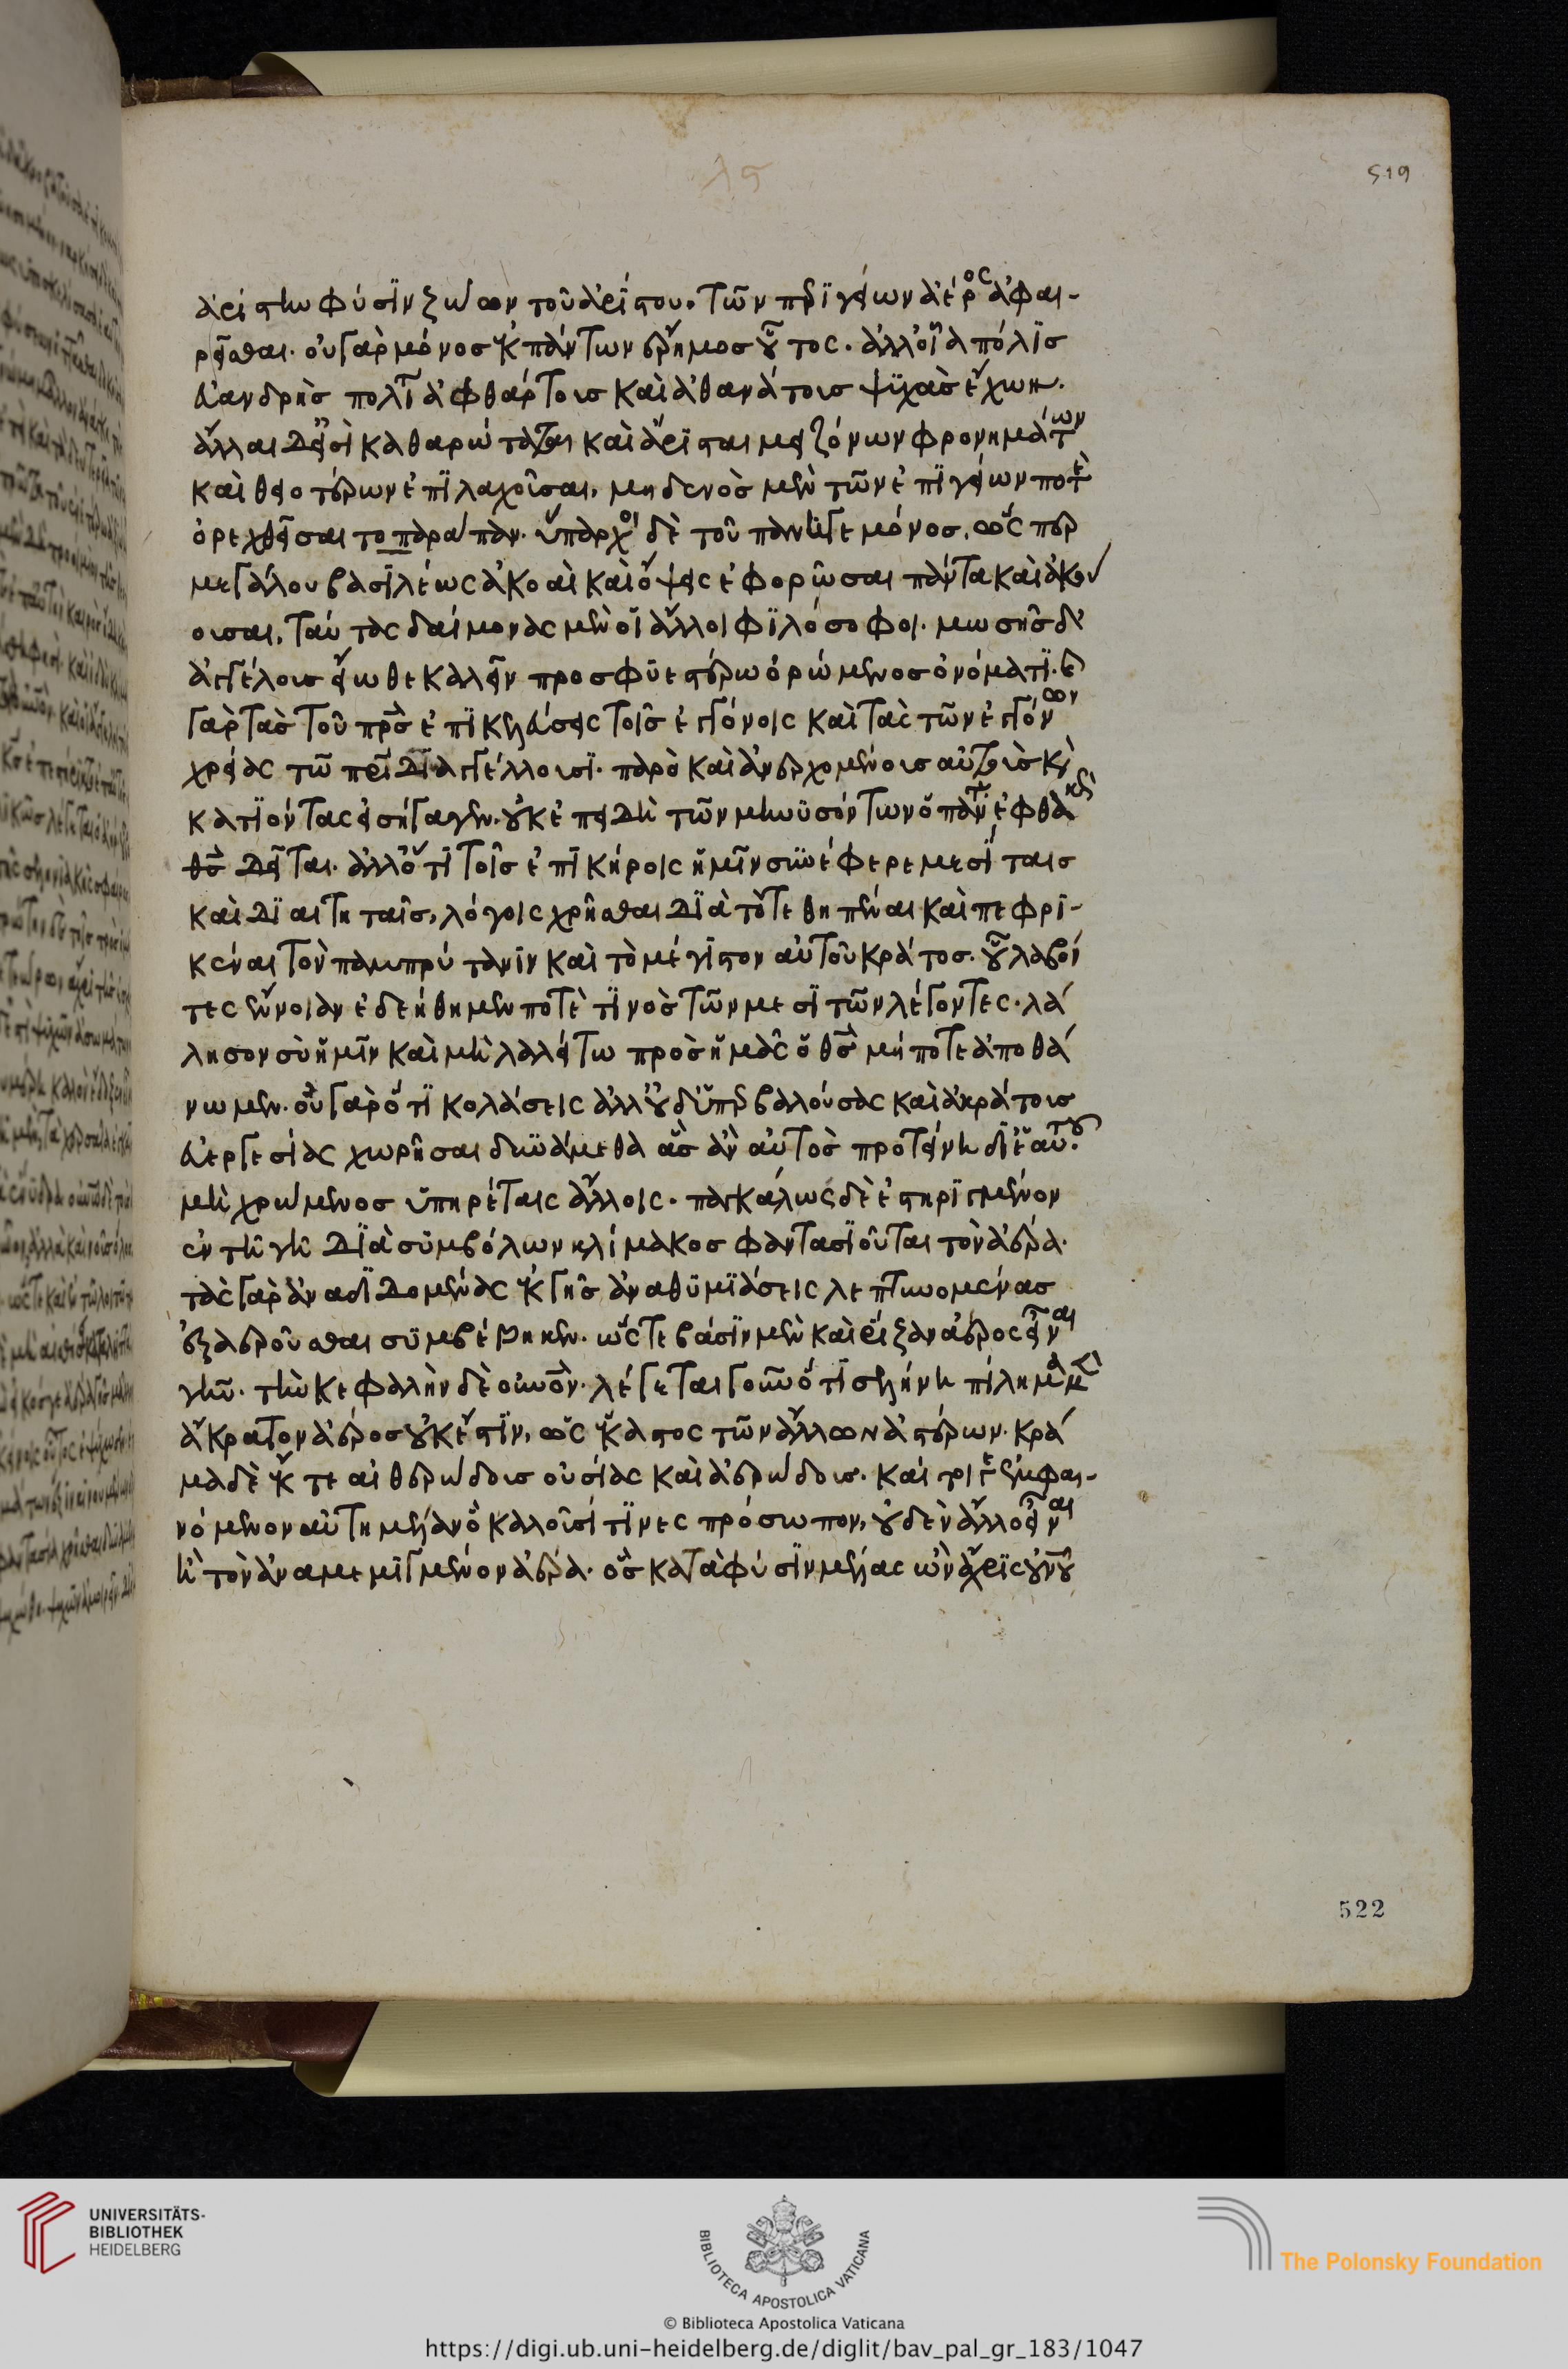 ἀρίστην φύσϊν ζώων τοῦ ἀρίστου. τῶν πρϊγείων ἀέρος ἀφαι-
ρεῖσθαι. οὐ γὰρ μόνοσ ἐκ πάντων ἔρημοσ οὗτος. ἀλλοἷα πόλϊσ
εὐανδρῆσ πολίτ ἀφθάρτουσ καὶ ἀθανάτουσ ψϋχὰσ ἔχων.
ἄλλαι δεἰσὶ καθαρώταται καὶ ἄρϊσται μειζόνων φρονημάτων
καὶ θειοτέρων ἐπϊλαχοῦσαι, μηδενὸσ μὲν τῶν ἐπϊγείων ποτὲ
ὀρεχθεῖσαι το παράπαν. ὕπαρχοι δὲ τοῦ πανηγεμόνοσ, ὥς περ
μεγάλου βασϊλέως ἀκοαὶ καὶ ὄψεις ἐφορῶσαι πάντα καὶ ἀκού
ουσαι, ταύτας δαίμονας μὲν οἱ ἄλλοι φϊλόσοφοι. μωσῆσ δὲ
ἀγγέλουσ εἴωθε καλεῖν προσφϋεστέρω χρώμενοσ ὀνόματϊ. καὶ
γὰρ τὰσ τοῦ πρσ ἐπϊκελεύσεις τοῖσ ἐγγόνοις καὶ τὰς τῶν ἐγγόνων
χρείας τῶ πρϊ δϊαγγέλλουσϊ. παρὸ καὶ ἀνερχομένουσ αὐτοὺσ καὶ
κατϊόντας εἰσήγαγεν. οὐκ ἐπειδὴ τῶν μηνϋσόντων ὁ πάντ ἐφθακὼς
θσ δεῖται. ἀλλὅτϊ τοῖσ ἐπϊκήροις ἡμῖν σϋνέφερε μεσϊταισ
καὶ δϊαιτηταῖσ, λόγοις χρῆσθαι δϊὰ τὸ τεθηπέναι καὶ πεφρϊ-
κέναι τὸν παμπρύτανϊν καὶ τὸ μέγϊστον αὐτοῦ κράτοσ. οὗ λαβόν
τες ἔννοιαν ἐδεήθημεν ποτὲ τϊνοσ τῶν μεσϊτῶν λέγοντες. λά
λησον σὺ ἡμῖν καὶ μὴ λαλείτω προσ ἡμᾶς ὁ θσ μήποτε ἀποθά
νωμεν. οὐ γὰρ ὅτϊ κολάσεις ἀλλοὐδὑπερβαλούσας καὶ ἀκράτουσ
εὐεργεσίας χωρῆσαι δυνάμεθα ἃσ ἂν αὐτὸσ προτείνη δϊἑαυτοῦ
μὴ χρώμενοσ ὑπηρέταις ἄλλοις. παγκάλως δὲ ἐστηρϊγμένον
ἐν τῆ γῆ δϊὰ σϋμβόλων κλίμακοσ φαντασϊοῦται τὸν ἀέρα.
τὰς γὰρ ἀναδϊδομένας ἐκ γῆσ ἀναθϋμϊάσεις λεπτυνομένασ
ἐξαεροῦσθαι σϋμβέβηκεν. ὥστε βάσϊν μὲν καὶ ῥίζαν ἀέρος εἶναι
γῆν. τὴν κεφαλὴν δὲ οὐνον. λέγεται γοῦν ὅτϊ σελήνη πίλημα μὲν
ἄκρατον ἀέροσ οὐκ ἔστϊν, ὡς ἕκαστος τῶν ἄλλων ἀστέρων. κρά
μα δὲ ἔκ τε αἰθερώδουσ οὐσίας καὶ ἀερώδουσ. καὶ τό τε ἐμφαι-
νόμενον αὐτῆ μέλαν ὃ καλοῦσί τϊνες πρόσωπον, οὐδὲν ἄλλο εἶναι
ἢ τὸν ἀναμεμϊγμένον ἀέρα. ὃσ κατὰ φύσϊν μέλας ὢν ἄχρϊς οὐνοῦ
519
522
UNIVERSITÄTS-
BIBLIOTHEK
HEIDELBERG
BIBLIOTECA APOSTOLICA VATICANA
The Polonsky Foundation
© Biblioteca Apostolica Vaticana
https://digi.ub.uni-heidelberg.de/diglit/bav_pal_gr_183/1047